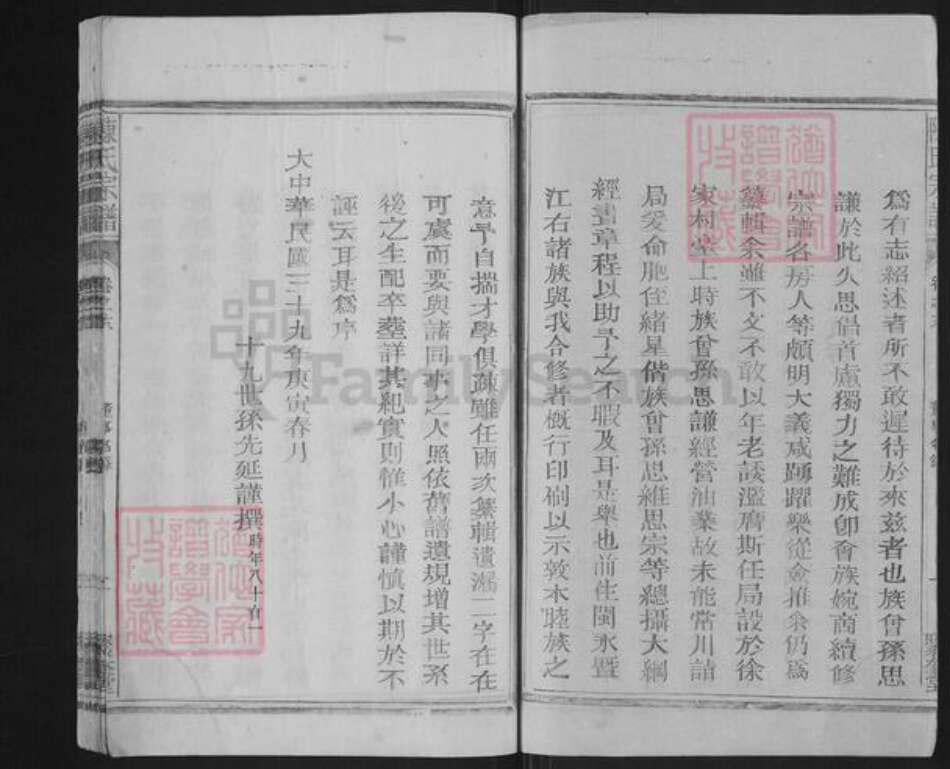 爲有志紹述者所不敢遲待於來玆者也族曾孫思
謙於此久思倡首慮獨力之難成卽會族婉商續修
宗譜各房人等頗明大義咸踴躍樂從僉推余仍爲
纂輯余雖不文不敢以年老談濫膺斯任局設於徐
家村堂上時族曾孫思謙經營油業故未能常川詣
局爰命胞侄緒星偕族曾孫思維思宗等總攝大綱
經書章程以助予之不暇及耳是舉也前往閩永暨
江右諸族與我合修者概行印刷以示敦本睦族之
意予自揣才學俱疎雖任兩次纂輯遺漏二字在在
可虞而要與諸同事之人照依舊譜遺規增其世系
後之生配卒塟詳其紀實則惟小心謹慎以期於不
誣云耳是爲序
大中華民國三十九年庚寅春月
十九世孫先延謹撰時年八十有一
陳氏宗譜
FamilySearch
譜學會
收藏
譜學會
收藏